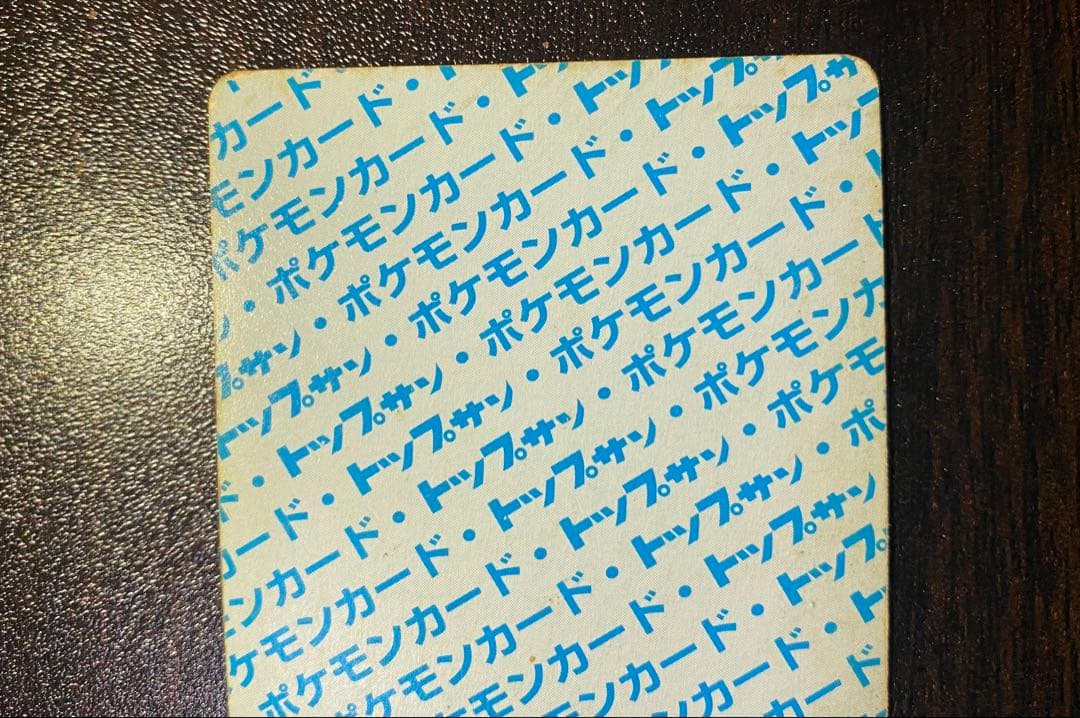 カード・
モンカード・ト
ポケモンカード・トッ
・ポケモンカード・トップ
・ポケモンカード・トップサ
プサン・ポケモンカード・トップサ
トップサン・ポケモンカード・トップ
ド・トップサン・ポケモンカード・ト
カード・トップサン・ポケモンカード
ンカード・トップサン・ポケモンカ
ケモンカード・トップサン・ポケモ
ポケモンカード・トップサン・ポ
ケモンカード・トップサン
モンカード・トップ
ンカード・ト
カード